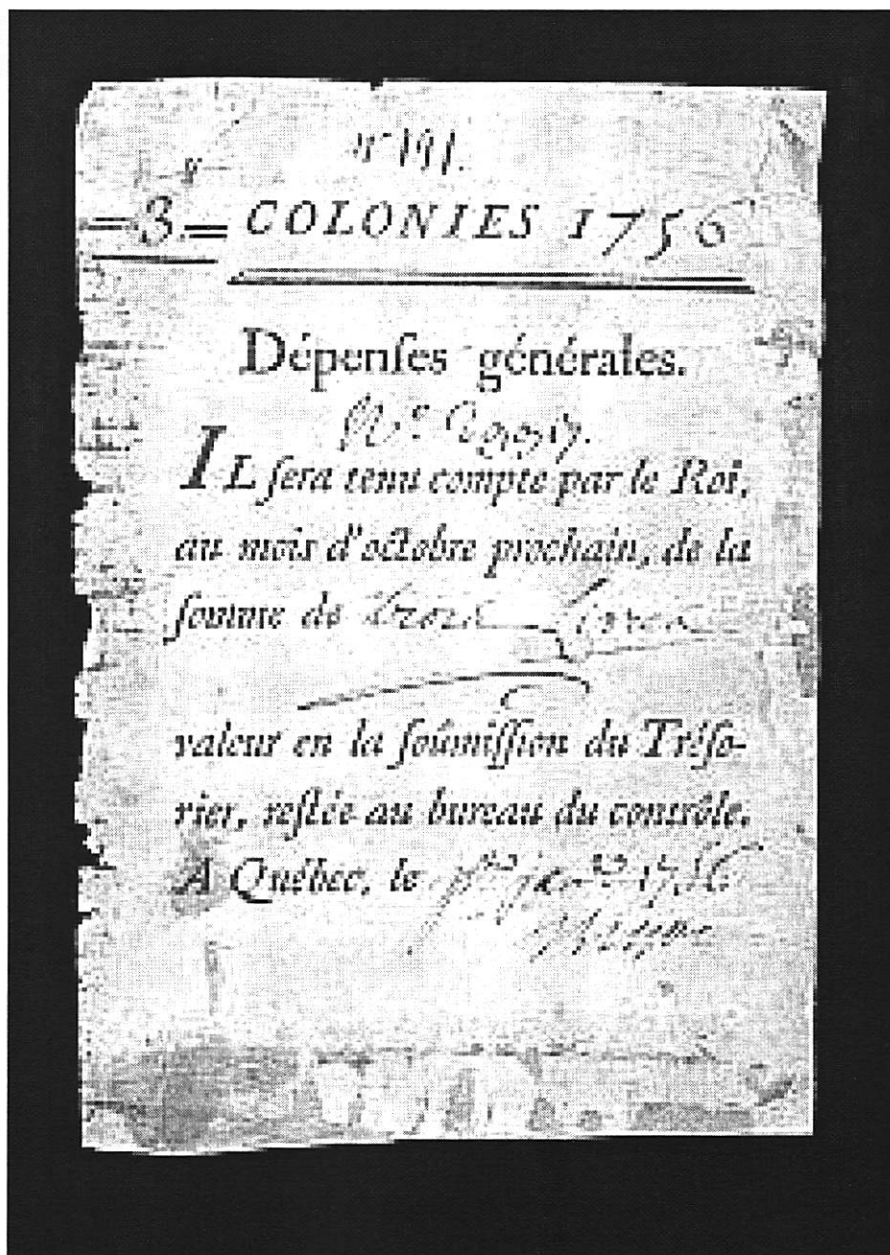 =3.= COLONIES 1756
Dépenſes générales.
IL ſera tenu compte par le Roi,
au mois d'octobre prochain, de la
ſomme de trois livres
valeur en la ſoûmiſſion du Tréſo-
rier, reſtée au bureau du contrôle.
A Québec, le 1756